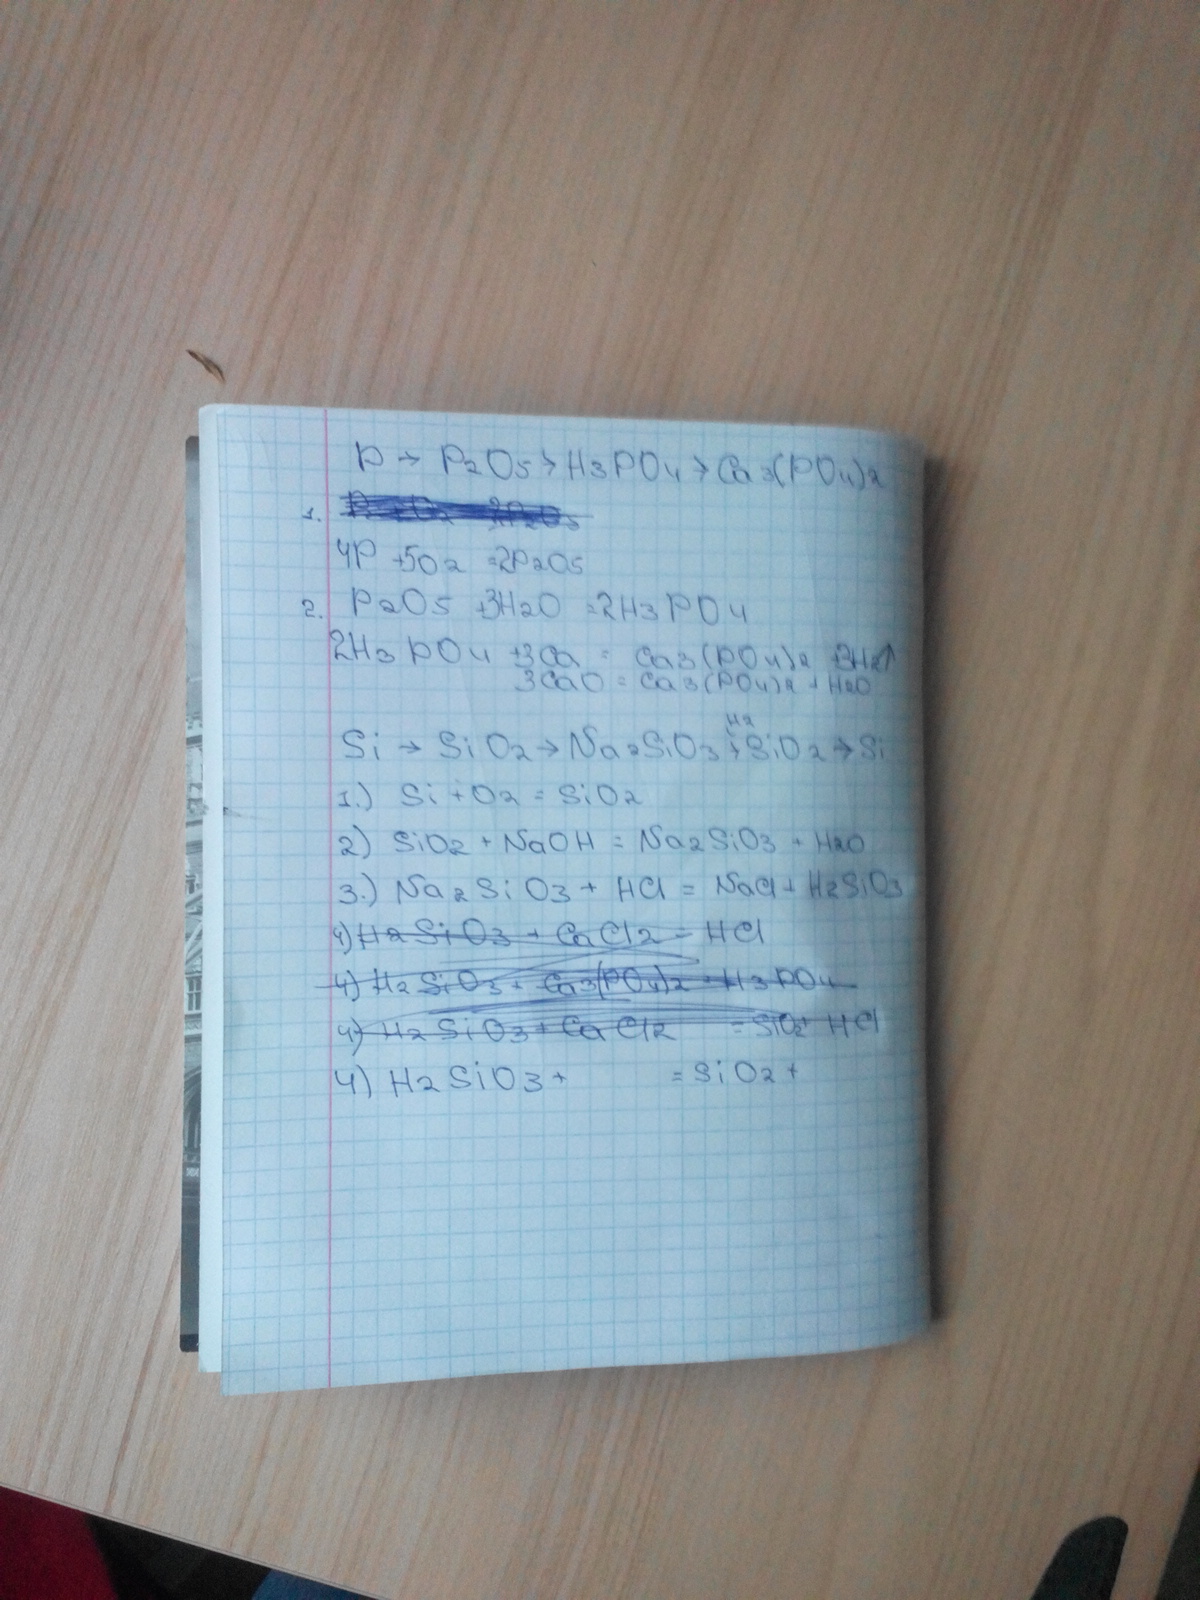 P → P2O5 → H3PO4 → Ca3(PO4)2
1. P O2 2P2O5
4P +5O2 =2P2O5
2. P2O5 +3H2O =2H3PO4
2H3PO4 +3Ca = Ca3(PO4)2 +3H2↑
3CaO = Ca3(PO4)2 + H2O
H2
Si → SiO2 → Na2SiO3 → SiO2 → Si
1.) Si + O2 = SiO2
2) SiO2 + NaOH = Na2SiO3 + H2O
3.) Na2SiO3 + HCl = NaCl + H2SiO3
4) H2SiO3 + CaCl2 = HCl
4) H2SiO3 + Ca3(PO4)2 = H3PO4
4) H2SiO3 + CaCl2 = SiO2+ HCl
4) H2SiO3 + = SiO2 +